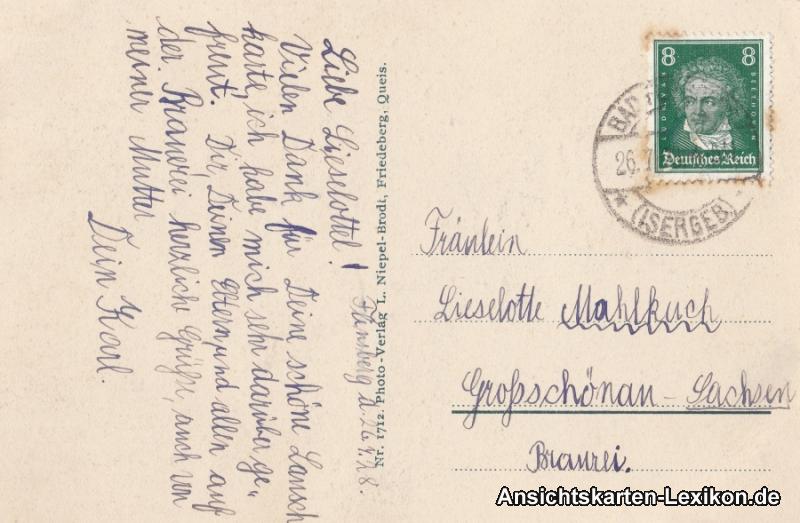 Flinsberg d. 26.7.28.
Liebe Lieselotte!
Vielen Dank für Deine schöne Lansch
karte, ich habe mich sehr darüber ge„
freut. Dir, Deinen Eltern und allen auf
der Brauerei herzliche Grüße, auch von
meiner Mutter
Dein Karl.
Nr. 1712. Photo-Verlag L. Niepel-Brodt, Friedeberg, Queis.
8 8
LUDW. VAN BEETHOVEN
Deutsches Reich
BAD
26.7
(ISERGEB)
Fräulein
Lieselotte Mahlkuch
Großschönau - Sachsen
Brauerei.
Ansichtskarten-Lexikon.de